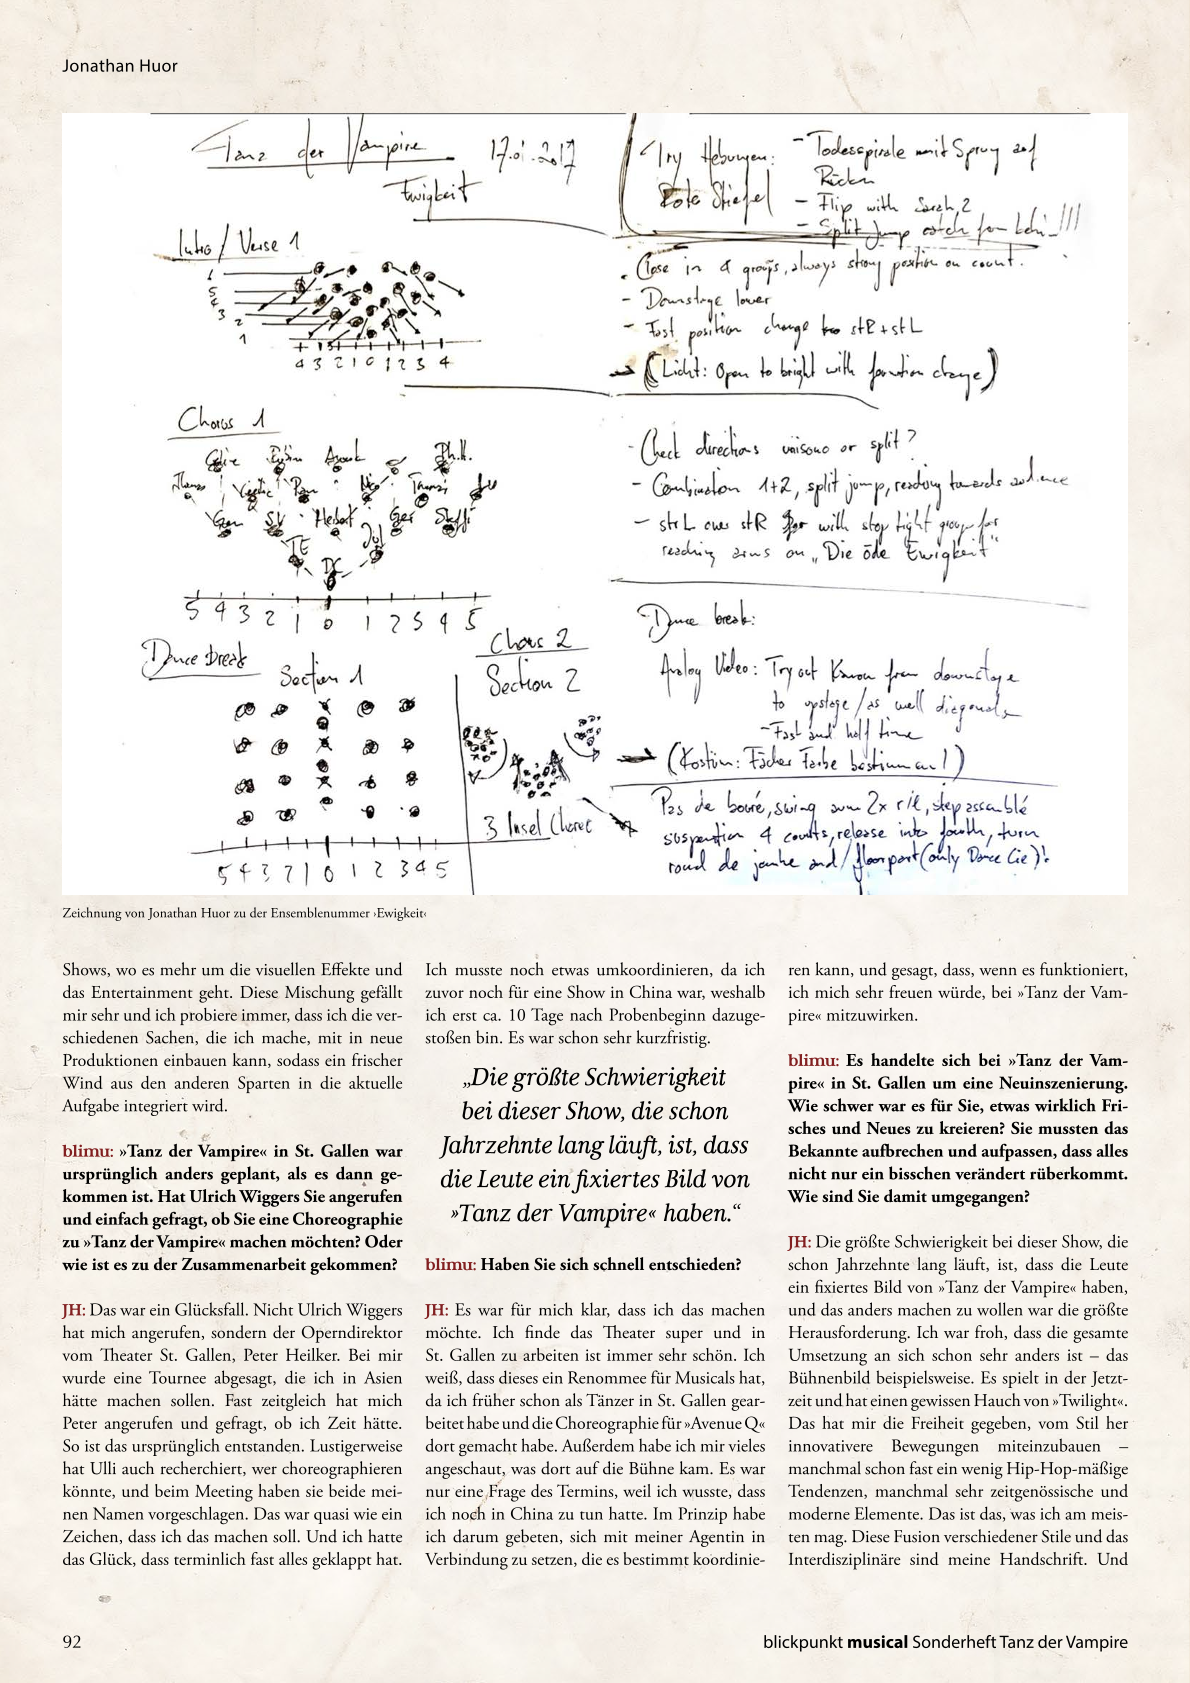 Jonathan Huor
Tanz der Vampire 17.01.2017
Ewigkeit
Try Hebungen:
Rote Stiefel
- Todesspirale mit Sprung auf
Rücken
- Flip with Sarah 2
- Split Jump catch from !!!
Intro / Verse 1
5
4
3
2
1
4 3 2 1 0 1 2 3 4
Close in 4 groups, always strong position on count.
- Downstage lower
- Fast position change to stR + stL
(Licht: Open to bright with formation change)
Chorus 1
5 4 3 2 1 0 1 2 3 4 5
- Check directions unisono or split?
- Combination 1+2, split jump, reaching towards audience
- strL over stR with stop tight group for
reaching arms on „Die öde Ewigkeit"
Dance break
Section 1
5 4 3 2 1 0 1 2 3 4 5
Chorus 2
Section 2
3 Insel Choreo
Dance break:
Analog Video: Try out Kanon from downstage
to upstage / as well diagonals
- Fast and half time
(Kostüm: Fächer Farbe bestimmen!)
Pas de bouré, swing arm 2x r/l, step assemblé
suspension 4 counts, release into fourth, turn
rond de jambe and / floorpart (only Dance Cie)!
Zeichnung von Jonathan Huor zu der Ensemblenummer ›Ewigkeit‹
Shows, wo es mehr um die visuellen Effekte und
das Entertainment geht. Diese Mischung gefällt
mir sehr und ich probiere immer, dass ich die ver-
schiedenen Sachen, die ich mache, mit in neue
Produktionen einbauen kann, sodass ein frischer
Wind aus den anderen Sparten in die aktuelle
Aufgabe integriert wird.
blimu: »Tanz der Vampire« in St. Gallen war
ursprünglich anders geplant, als es dann ge-
kommen ist. Hat Ulrich Wiggers Sie angerufen
und einfach gefragt, ob Sie eine Choreographie
zu »Tanz der Vampire« machen möchten? Oder
wie ist es zu der Zusammenarbeit gekommen?
JH: Das war ein Glücksfall. Nicht Ulrich Wiggers
hat mich angerufen, sondern der Operndirektor
vom Theater St. Gallen, Peter Heilker. Bei mir
wurde eine Tournee abgesagt, die ich in Asien
hätte machen sollen. Fast zeitgleich hat mich
Peter angerufen und gefragt, ob ich Zeit hätte.
So ist das ursprünglich entstanden. Lustigerweise
hat Ulli auch recherchiert, wer choreographieren
könnte, und beim Meeting haben sie beide mei-
nen Namen vorgeschlagen. Das war quasi wie ein
Zeichen, dass ich das machen soll. Und ich hatte
das Glück, dass terminlich fast alles geklappt hat.
Ich musste noch etwas umkoordinieren, da ich
zuvor noch für eine Show in China war, weshalb
ich erst ca. 10 Tage nach Probenbeginn dazuge-
stoßen bin. Es war schon sehr kurzfristig.
„Die größte Schwierigkeit
bei dieser Show, die schon
Jahrzehnte lang läuft, ist, dass
die Leute ein fixiertes Bild von
»Tanz der Vampire« haben.“
blimu: Haben Sie sich schnell entschieden?
JH: Es war für mich klar, dass ich das machen
möchte. Ich finde das Theater super und in
St. Gallen zu arbeiten ist immer sehr schön. Ich
weiß, dass dieses ein Renommee für Musicals hat,
da ich früher schon als Tänzer in St. Gallen gear-
beitet habe und die Choreographie für »Avenue Q«
dort gemacht habe. Außerdem habe ich mir vieles
angeschaut, was dort auf die Bühne kam. Es war
nur eine Frage des Termins, weil ich wusste, dass
ich noch in China zu tun hatte. Im Prinzip habe
ich darum gebeten, sich mit meiner Agentin in
Verbindung zu setzen, die es bestimmt koordinie-
ren kann, und gesagt, dass, wenn es funktioniert,
ich mich sehr freuen würde, bei »Tanz der Vam-
pire« mitzuwirken.
blimu: Es handelte sich bei »Tanz der Vam-
pire« in St. Gallen um eine Neuinszenierung.
Wie schwer war es für Sie, etwas wirklich Fri-
sches und Neues zu kreieren? Sie mussten das
Bekannte aufbrechen und aufpassen, dass alles
nicht nur ein bisschen verändert rüberkommt.
Wie sind Sie damit umgegangen?
JH: Die größte Schwierigkeit bei dieser Show, die
schon Jahrzehnte lang läuft, ist, dass die Leute
ein fixiertes Bild von »Tanz der Vampire« haben,
und das anders machen zu wollen war die größte
Herausforderung. Ich war froh, dass die gesamte
Umsetzung an sich schon sehr anders ist – das
Bühnenbild beispielsweise. Es spielt in der Jetzt-
zeit und hat einen gewissen Hauch von »Twilight«.
Das hat mir die Freiheit gegeben, vom Stil her
innovativere Bewegungen miteinzubauen –
manchmal schon fast ein wenig Hip-Hop-mäßige
Tendenzen, manchmal sehr zeitgenössische und
moderne Elemente. Das ist das, was ich am meis-
ten mag. Diese Fusion verschiedener Stile und das
Interdisziplinäre sind meine Handschrift. Und
92
blickpunkt musical Sonderheft Tanz der Vampire